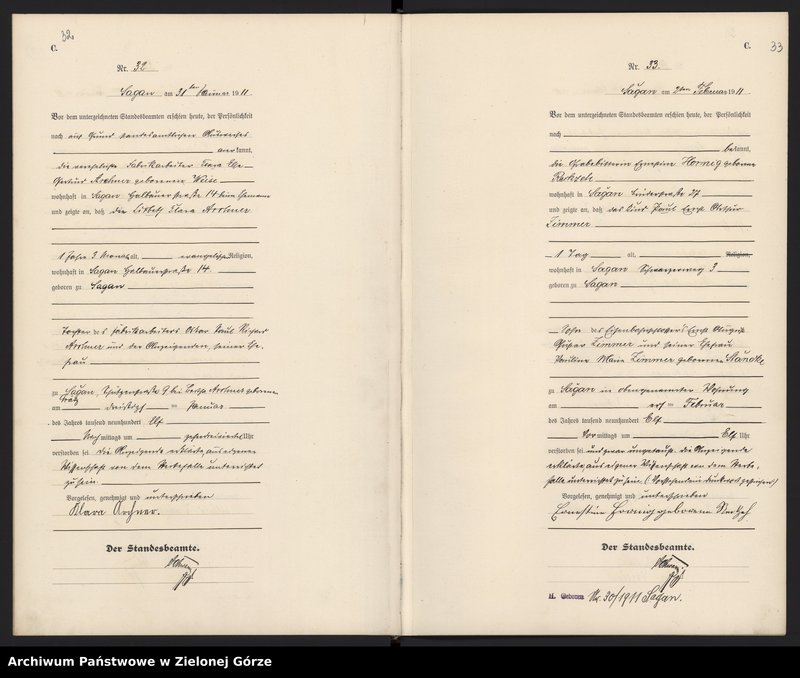 32
C.
Nr. 32
Sagan am 31ten Januar 1911
Vor dem unterzeichneten Standesbeamten erschien heute, der Persönlichkeit
nach auf Grund standesamtlichen Ausweises
anerkannt,
die verehelichte Fabrikarbeiter Klara
Archner geborenen Weise
wohnhaft in Sagan Halbauerstraße 14 beim Ehemann
und zeigte an, daß die Lisbeth Klara Archner
1 Jahr 3 Monat alt, evangelischer Religion,
wohnhaft in Sagan Halbauerstraße 14.
geboren zu Sagan
Tochter des Fabrikarbeiters Oskar Paul Richard
Archner und der Anzeigenden, seiner Ehe-
frau
zu Sagan, Schützenstraße 9 bei Archner geborenen
am dreißigsten Januar
des Jahres tausend neunhundert Elf
Nachmittags um Uhr
verstorben sei. Die Anzeigende erklärte, aus eigener
Wissenschaft von dem Sterbefalle unterrichtet
zu sein.
Vorgelesen, genehmigt und unterschrieben
Klara Archner.
Der Standesbeamte.
C.
33
Nr. 33.
Sagan am 2ten Februar 1911
Vor dem unterzeichneten Standesbeamten erschien heute, der Persönlichkeit
nach
bekannt,
die Hebamme Hornig geborene
wohnhaft in Sagan Lindenstraße 27
und zeigte an, daß das Kind Paul Ernst
Zimmer
1 Tag alt, Religion,
wohnhaft in Sagan 3
geboren zu Sagan
Sohn des Ernst August
Gustav Zimmer und seiner Ehefrau
Pauline Marie Zimmer geborenen
zu Sagan in obengenannter Wohnung
am ersten Februar
des Jahres tausend neunhundert Elf
Vormittags um Elf Uhr
verstorben sei und zwar ungetauft. Die Anzeigende
erklärte, aus eigener Wissenschaft von dem Sterbe-
falle unterrichtet zu sein.
Vorgelesen, genehmigt und unterschrieben
Ernestine Hornig geborene
Der Standesbeamte.
H. Geboren Nr. 30/1911 Sagan.
Archiwum Państwowe w Zielonej Górze